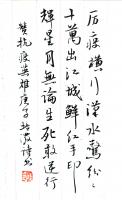 历疫横行汉水惊
十万出江城鲜红手印
辉星月无论生死敢逆行
赞抗疫英雄庚子
诗书